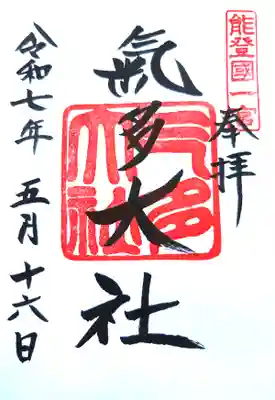 能登國一宮
奉拝
氣多大社
氣多大社
令和七年 五月 十六日